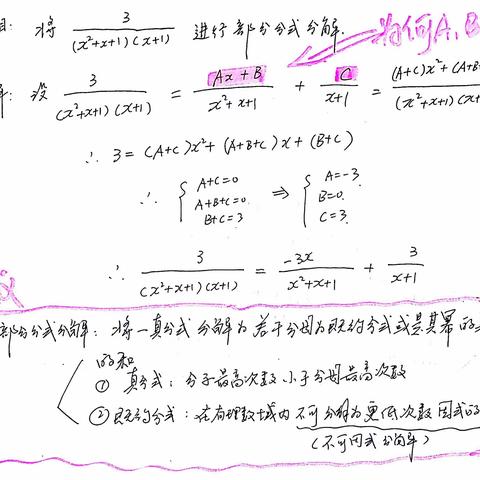 将 3/((x²+x+1)(x+1)) 进行部分分式分解. 为何A,B
设 3/((x²+x+1)(x+1)) = (Ax+B)/(x²+x+1) + C/(x+1) = ((A+C)x²+(A+B
∴ 3 = (A+C)x² + (A+B+C)x + (B+C)
∴ { A+C=0 ⇒ { A=-3.
A+B+C=0 B=0.
B+C=3 C=3.
∴ 3/((x²+x+1)(x+1)) = -3x/(x²+x+1) + 3/(x+1)
部分分式分解: 将一真分式分解为若干分母为既约分式或是其幂的
的和
① 真分式: 分子最高次数小于分母最高次数
② 既约分式: 在有理数域内不可分解为更低次数因式的
(不可因式分解)